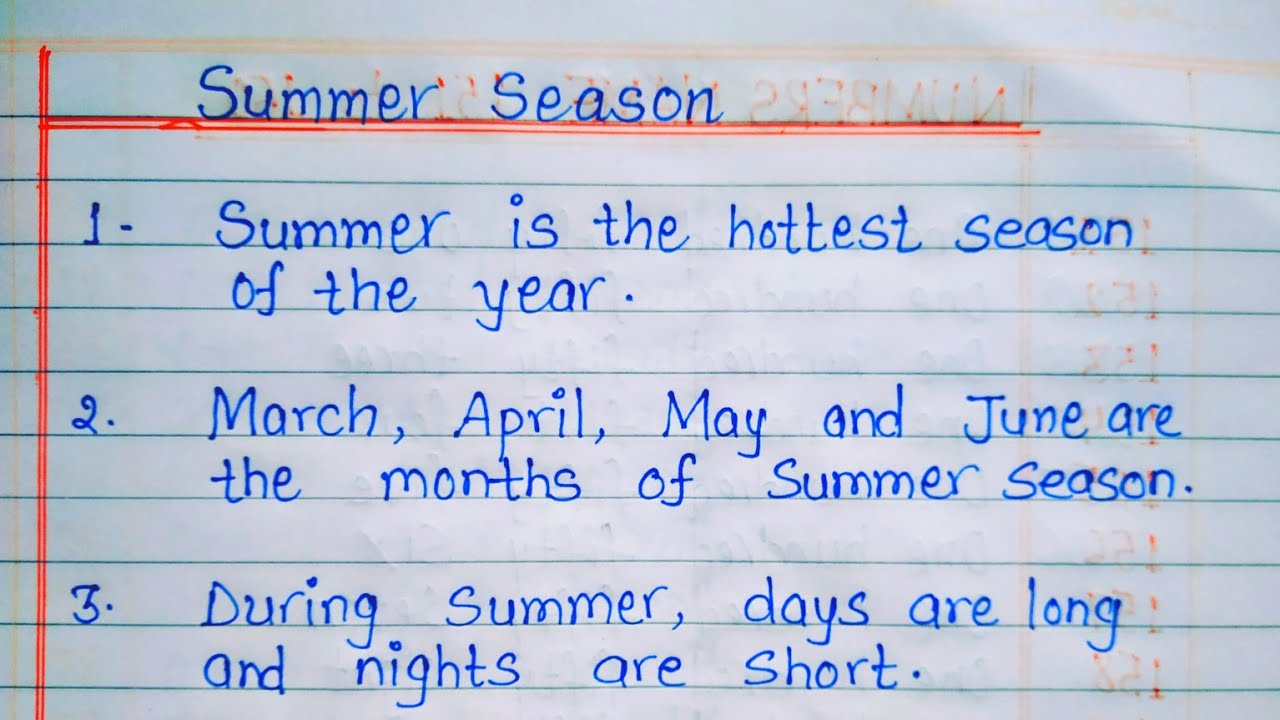 Summer Season
1- Summer is the hottest season
of the year.
2. March, April, May and June are
the months of Summer Season.
3. During Summer, days are long
and nights are short.